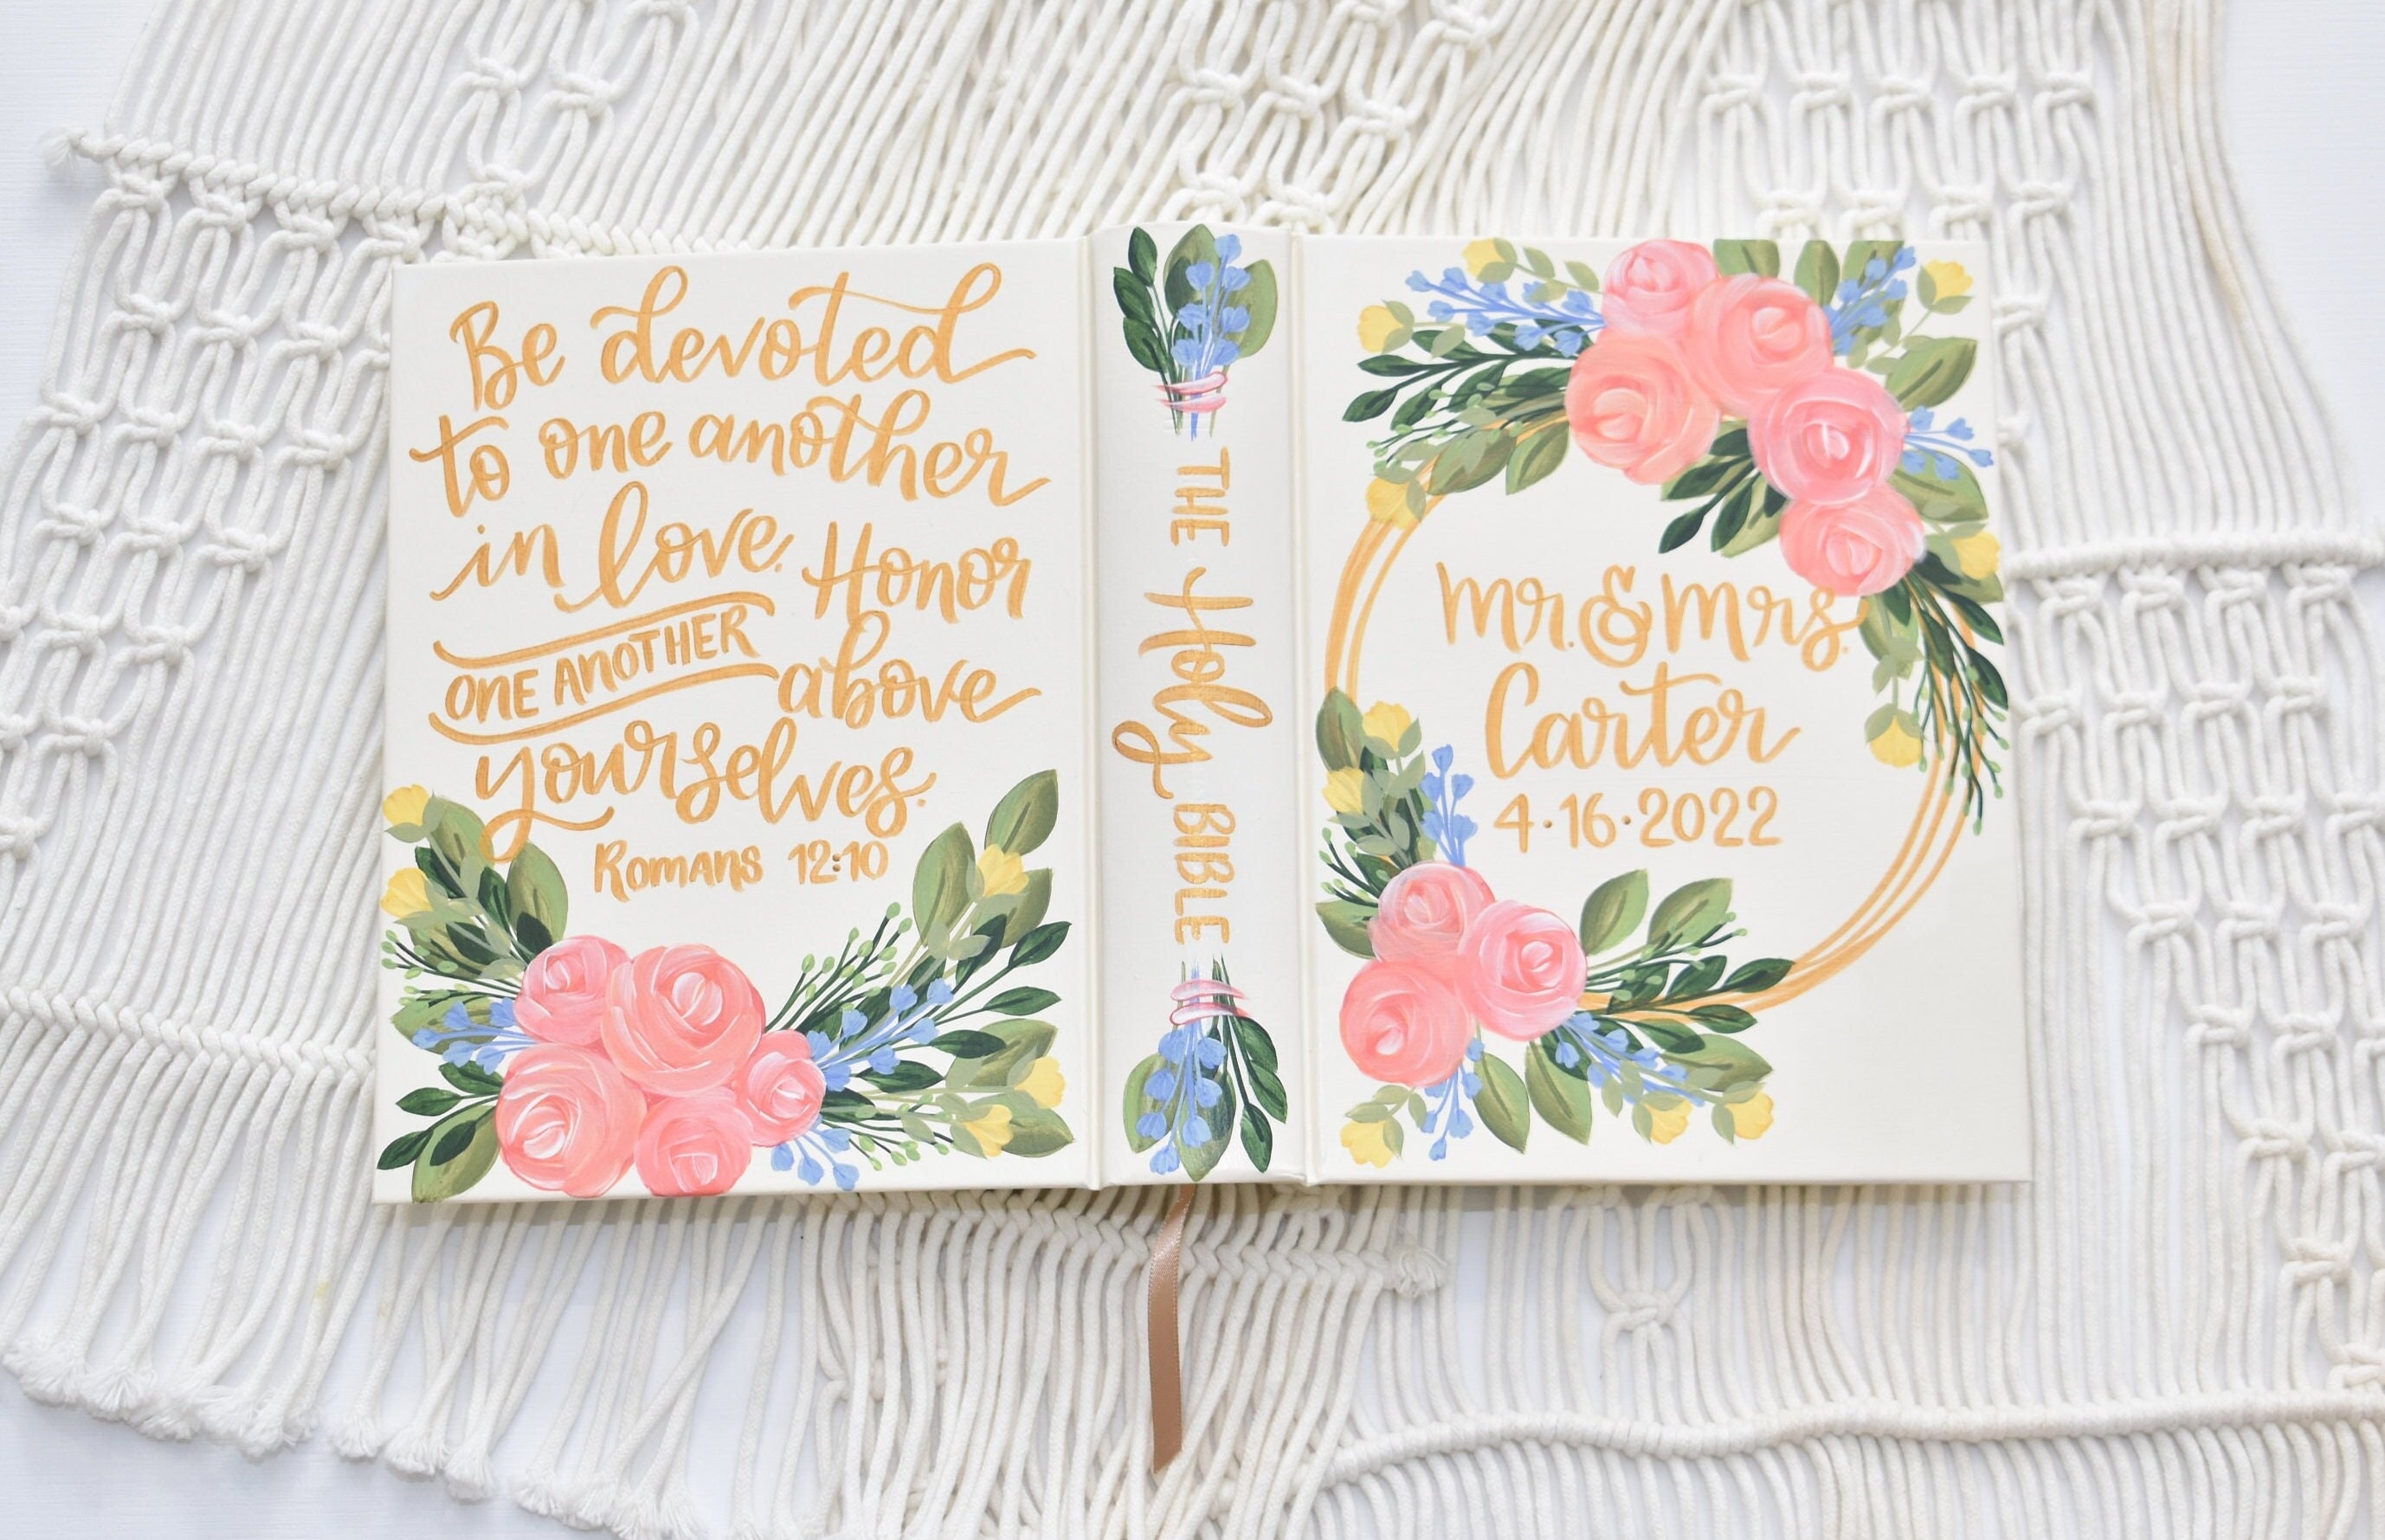 Be devoted
to one another
in love. Honor
ONE ANOTHER above
yourselves.
Romans 12:10
THE Holy BIBLE
Mr. & Mrs.
Carter
4·16·2022